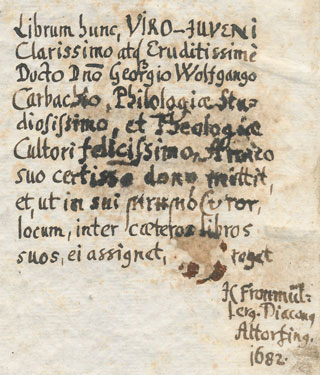 Librum hunc, VIRO-JUVENI
Clarissimo atq; Eruditissimè
Docto Dnō Georgio Wolfgango
Carbachio, Philologiæ Stu-
diosissimo, et Theologiæ
Cultori felicissimo, Amico
suo certisso dono mittit,
et, ut in sui
locum, inter cæteros libros
suos, ei assignet, roget
JC Fronmül-
lerg. Diacong
Altorfing.
1682.